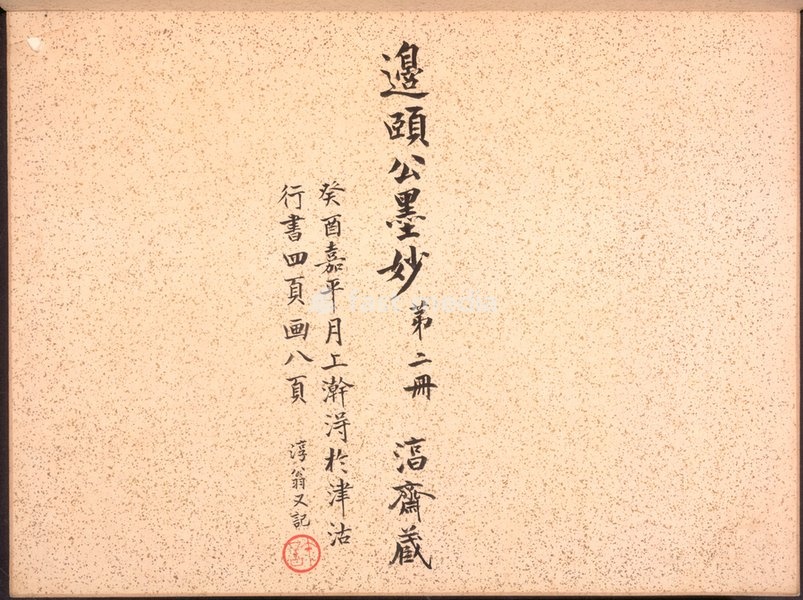 邉頤公墨妙 第二冊 㵆齋藏
癸酉嘉平月上澣淂於津沽
行書四頁画八頁 淳翁又記